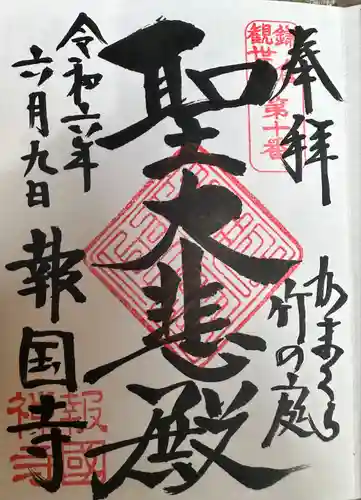 奉拝
かまくら
竹の庭
聖大悲殿
令和六年
六月九日
報国寺
第十番
報國